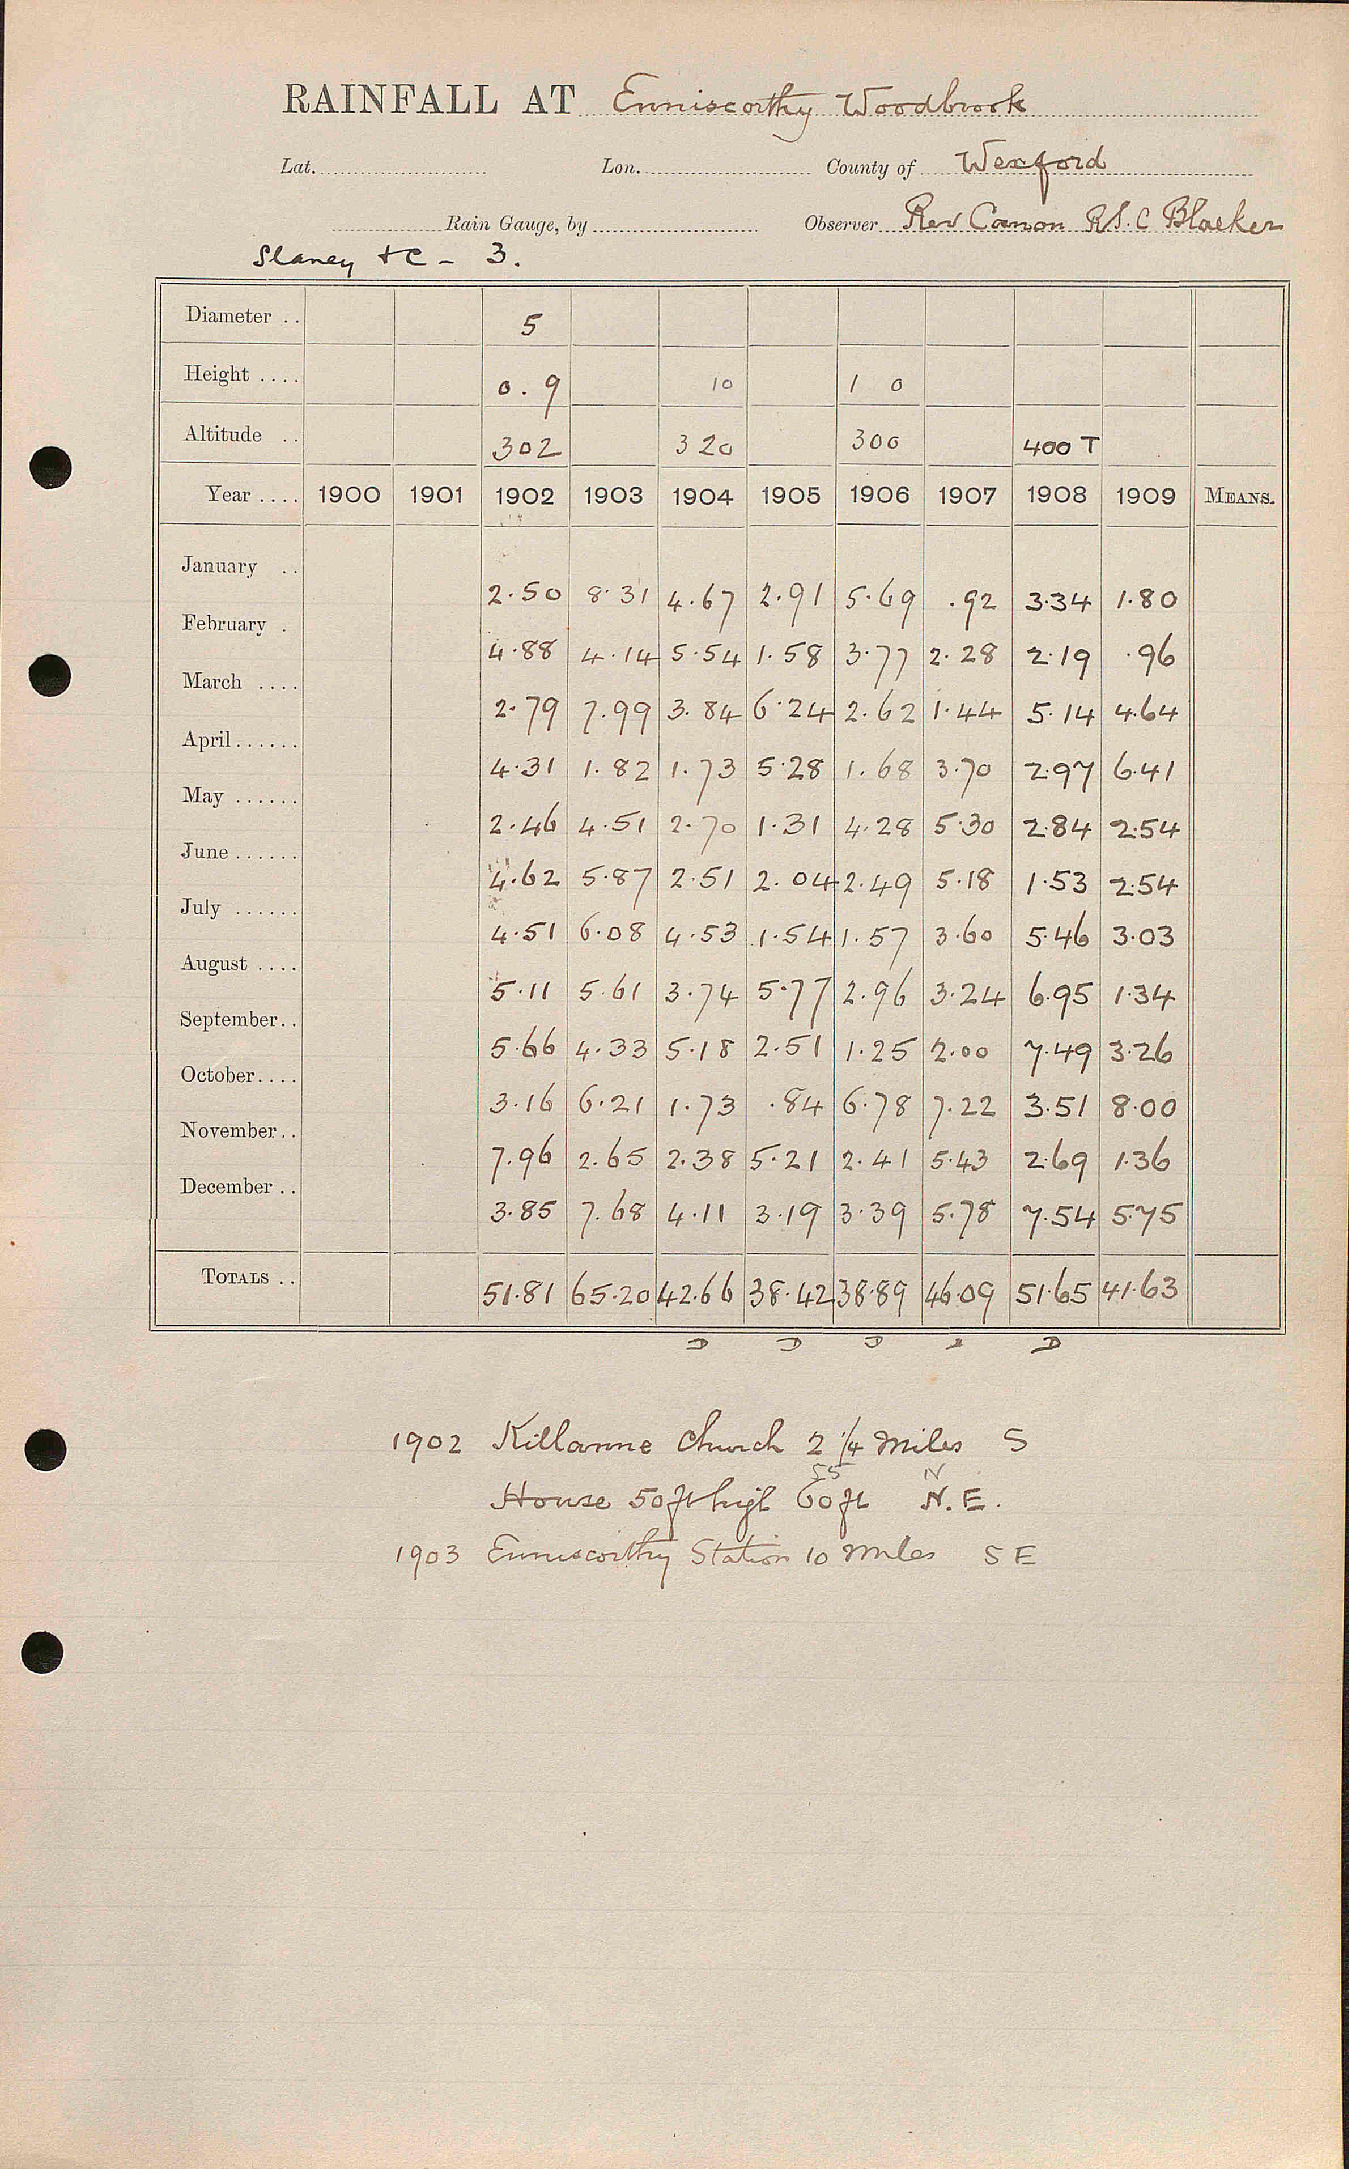 RAINFALL AT Enniscorthy Woodbrook
Lat. Lon. County of Wexford
Rain Gauge, by Observer Rev Canon R.S.C Blacker
Slaney &C - 3.
Diameter .. 5
Height .... 0.9 10 1 0
Altitude .. 302 320 300 400 T
Year .... 1900 1901 1902 1903 1904 1905 1906 1907 1908 1909 MEANS.
January .. 2.50 8.31 4.67 2.91 5.69 .92 3.34 1.80
February . 4.88 4.14 5.54 1.58 3.77 2.28 2.19 .96
March .... 2.79 7.99 3.84 6.24 2.62 1.44 5.14 4.64
April...... 4.31 1.82 1.73 5.28 1.68 3.70 2.97 6.41
May ...... 2.46 4.51 2.70 1.31 4.28 5.30 2.84 2.54
June ...... 4.62 5.87 2.51 2.04 2.49 5.18 1.53 2.54
July ...... 4.51 6.08 4.53 1.54 1.57 3.60 5.46 3.03
August .... 5.11 5.61 3.74 5.77 2.96 3.24 6.95 1.34
September.. 5.66 4.33 5.18 2.51 1.25 2.00 7.49 3.26
October.... 3.16 6.21 1.73 .84 6.78 7.22 3.51 8.00
November.. 7.96 2.65 2.38 5.21 2.41 5.43 2.69 1.36
December .. 3.85 7.68 4.11 3.19 3.39 5.78 7.54 5.75
TOTALS .. 51.81 65.20 42.66 38.42 38.89 46.09 51.65 41.63
D D D D
1902 Killanne Church 2 1/4 miles S
55 N
House 50ft high 60ft N.E.
1903 Enniscorthy Station 10 miles S E